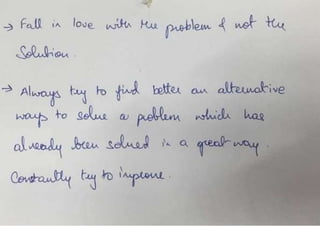 → Fall in love with the problem & not the
Solution.
→ Always try to find better an alternative
ways to solve a problem which has
already been solved in a great way.
Constantly try to improve.